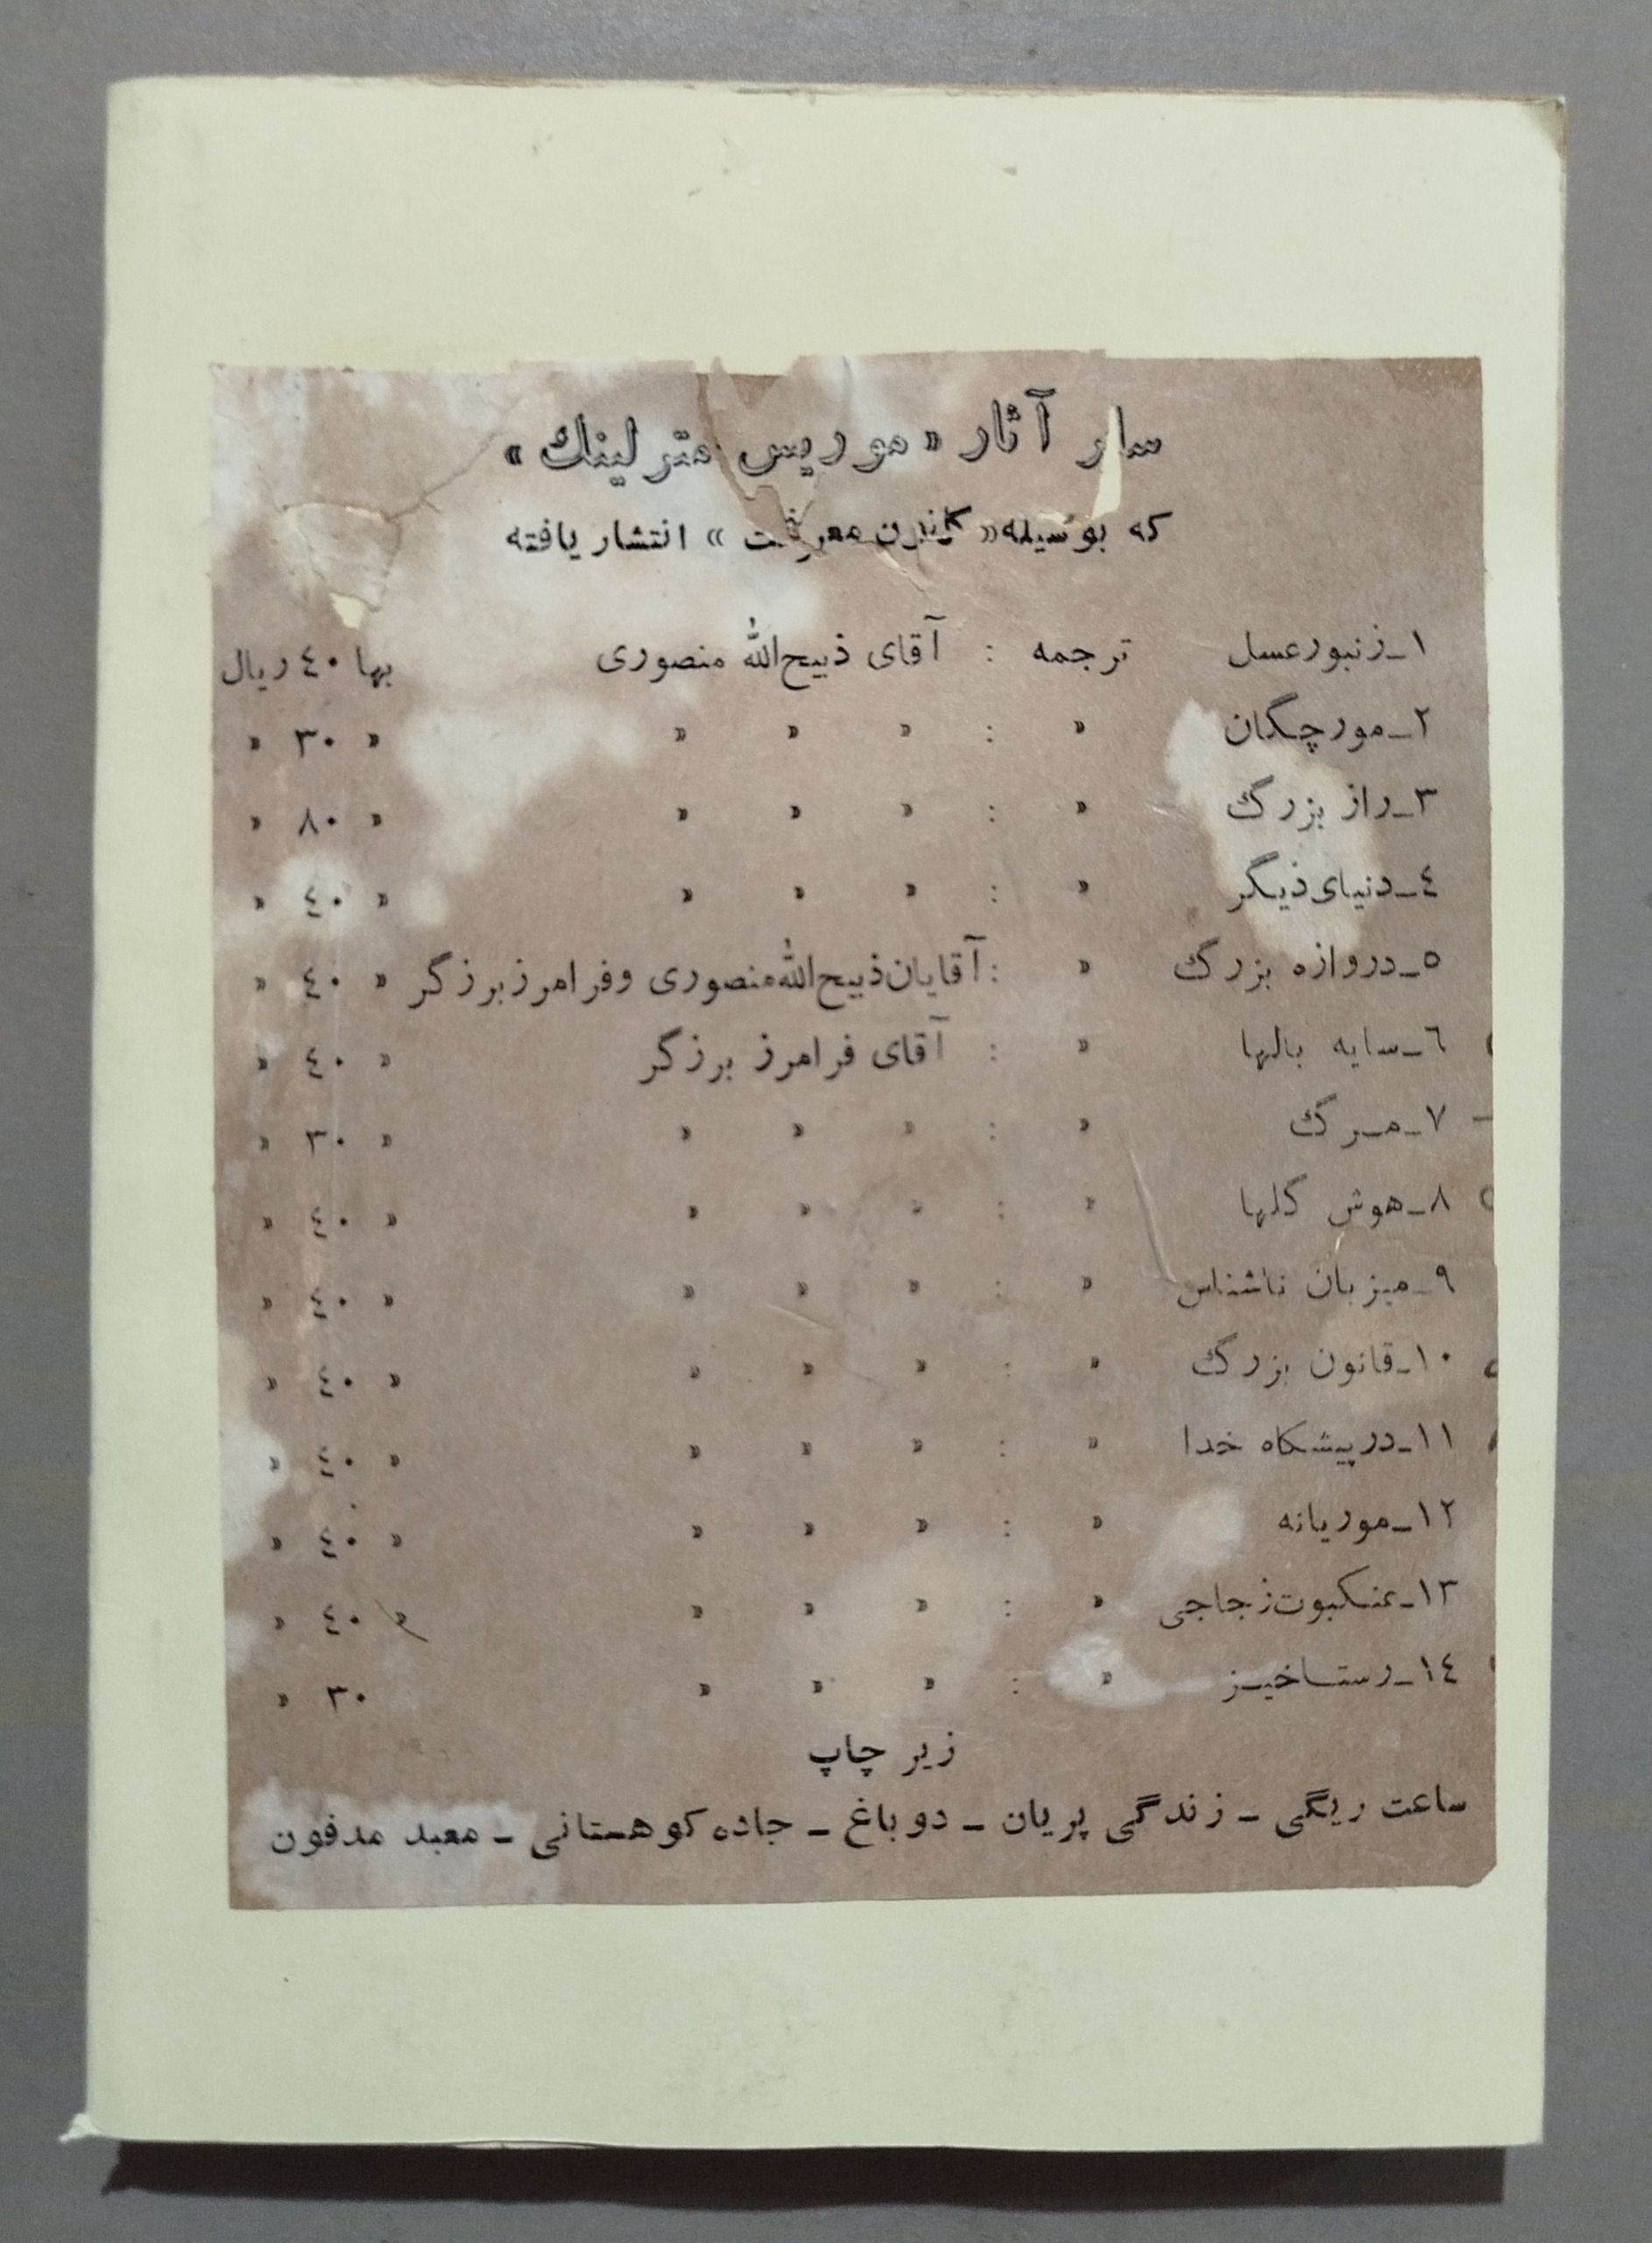 سایر آثار «موریس مترلینك»
که بوسیله «کانون معرفت» انتشار یافته
۱ـ زنبورعسل ترجمه : آقای ذبیح‌الله منصوری بها ۴۰ ریال
۲ـ مورچگان » : » » » » ۳۰ »
۳ـ راز بزرگ » : » » » » ۸۰ »
٤ـ دنیای دیگر » : » » » » ٤۰ »
۵ـ دروازه بزرگ » : آقایان ذبیح‌الله منصوری و فرامرز برزگر » ٤۰ »
٦ـ سایه بالها » : آقای فرامرز برزگر » ٤۰ »
۷ـ مرگ » : » » » » ۳۰ »
۸ـ هوش گلها » : » » » » ٤۰ »
۹ـ میزبان ناشناس » : » » » » ٤۰ »
۱۰ـ قانون بزرگ » : » » » » ٤۰ »
۱۱ـ درپیشگاه خدا » : » » » » ٤۰ »
۱۲ـ موریانه » : » » » » ٤۰ »
۱۳ـ عنکبوت زجاجی » : » » » » ٤۰ »
۱٤ـ رستاخیز » : » » » ۳۰ »
زیر چاپ
ساعت ریگی ـ زندگی پریان ـ دو باغ ـ جاده کوهستانی ـ معبد مدفون